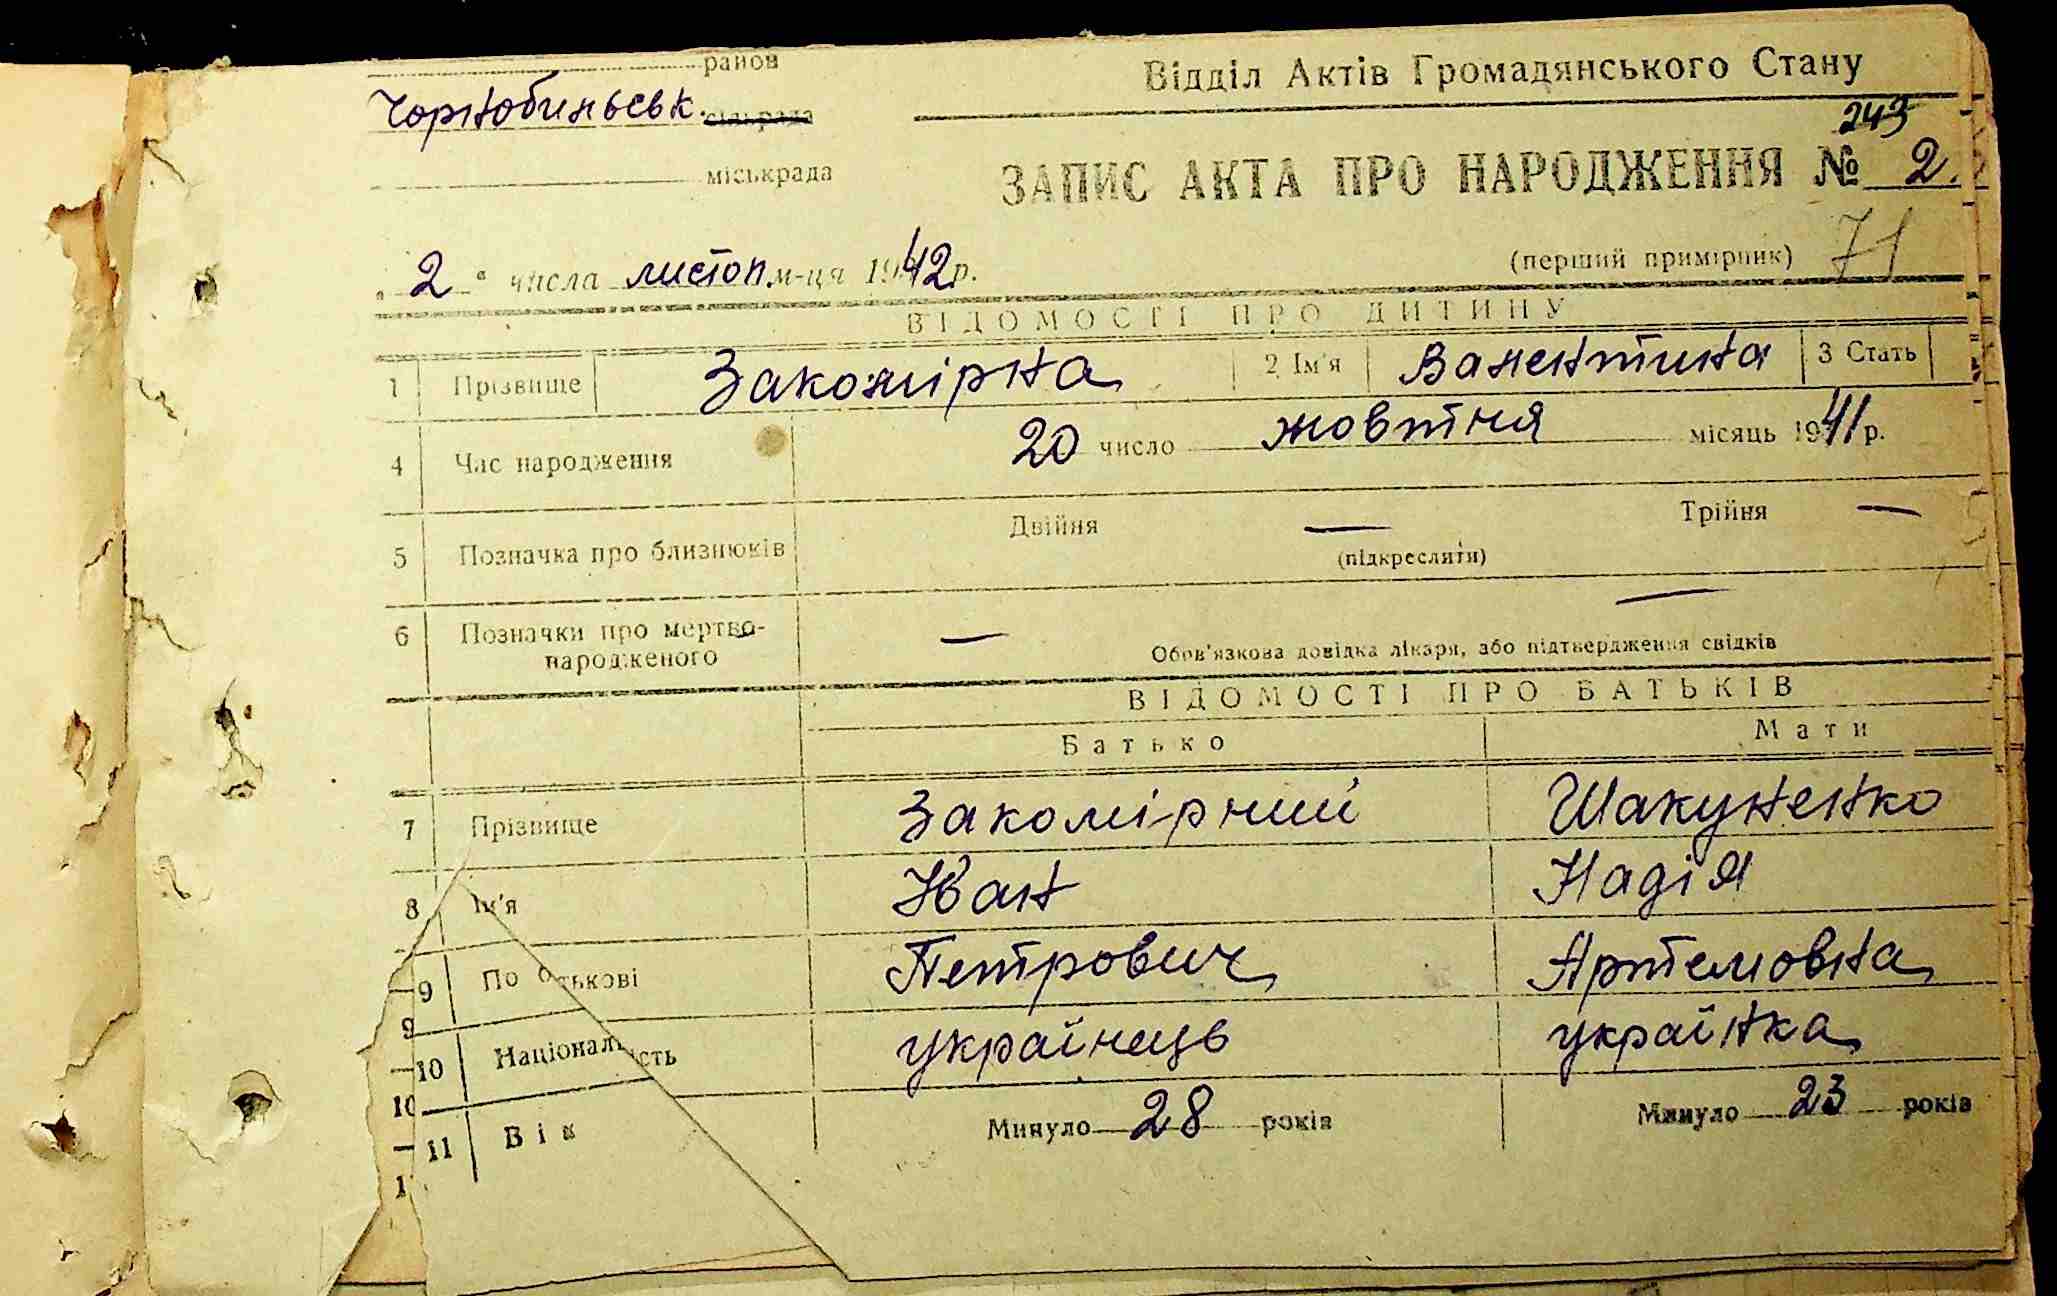 район
Відділ Актів Громадянського Стану
Чорнобильськ. сільрада
243
міськрада
ЗАПИС АКТА ПРО НАРОДЖЕННЯ № 2.
(перший примірник) 71
„ 2 " числа листоп м-ця 1942 р.
ВІДОМОСТІ ПРО ДИТИНУ
1 Прізвище Закомірна 2 Ім'я Валентина 3 Стать
4 Час народження 20 число жовтня місяць 1941 р.
5 Позначка про близнюків Двійня — Трійня —
(підкреслити)
6 Позначки про мертво-
народженого — —
Обов'язкова довідка лікаря, або підтвердження свідків
ВІДОМОСТІ ПРО БАТЬКІВ
Батько Мати
7 Прізвище Закомірний Шакуненко
8 Ім'я Іван Надія
9 По батькові Петрович Артемовна
9
10 Національність українець українка
10
11 Вік Минуло 28 років Минуло 23 років